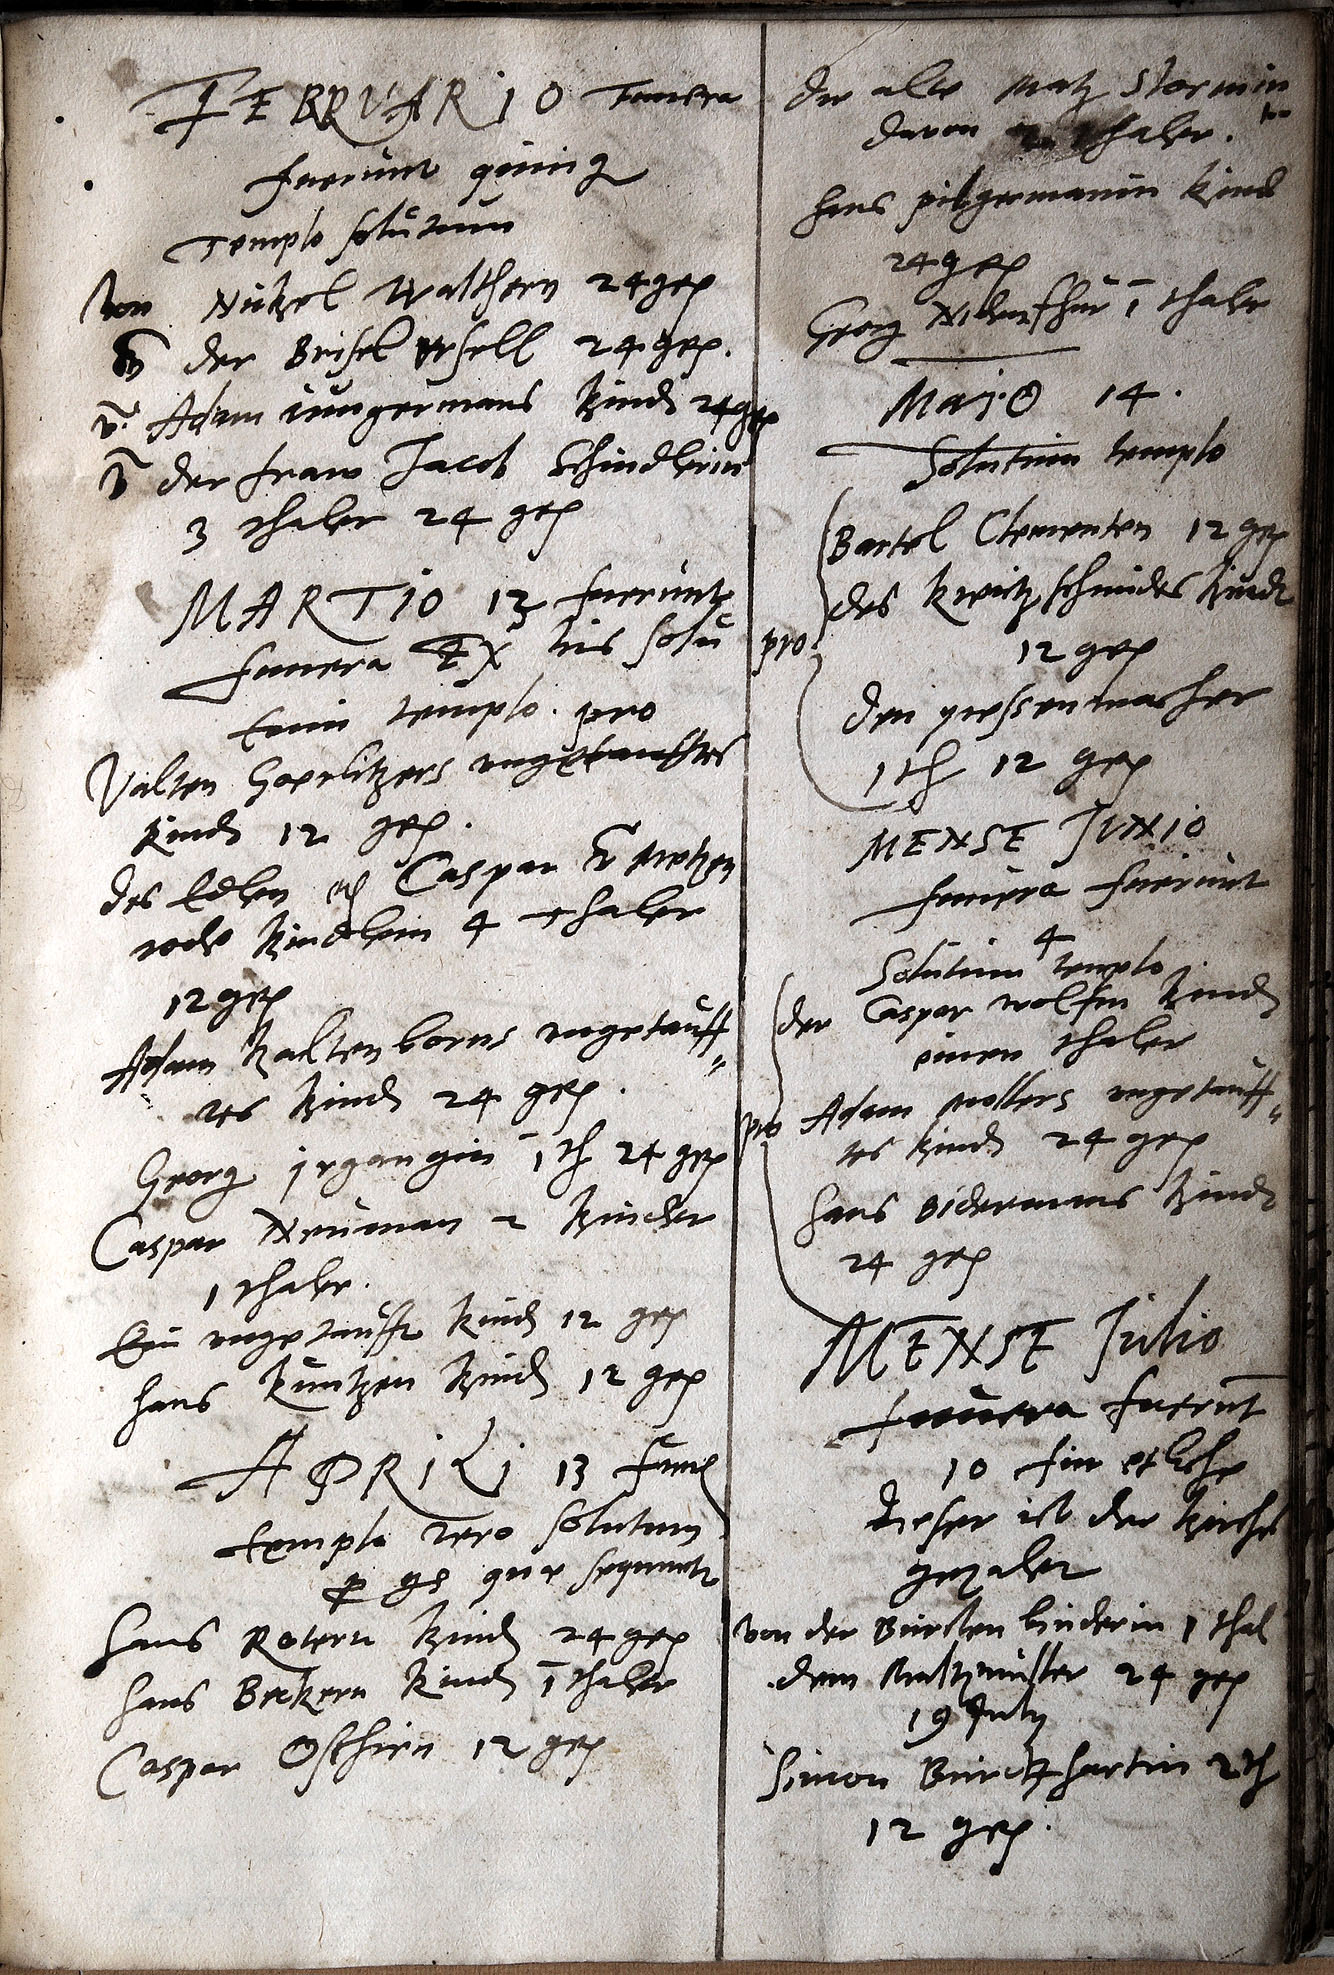 FEBRVARIO Funera
fuerunt
Templo solutum
Von Nickel Walthern 24 gep
der Beisel Vrsell 24 gep.
v. Adam jungermans Kindt 24 gep
v der fraw Jacob Schindlerin
3 thaler 24 gep
MARTIO 13 fuerunt
funera Ex his solu
tum templo. pro
Valten Goerlitzers ungetaufftes
Kindt 12 gep.
des Edlen Caspar
rode Kindlein 4 thaler
12 gep
Adam Kaltenborns ungetauff=
tes Kindt 24 gep.
Georg jrgangin 1 th 24 gep
Caspar Neuman 2 Kinder
1 thaler.
Ein ungetaufft Kindt 12 gep
Hans Kuntzen Kindt 12 gep
APRILI 13 fune
templo vero solutum
quae sequunt
Hans Rotern Kindt 24 gep
Hans Beckern Kindt 1 thaler
Caspar Osthirn 12 gep
die alte Matz Stormin
davon thaler.
Hans pilgermanin Kindt
24 gep
Georg 1 thaler
Majo 14.
Solutum templo
Bartel Clementen 12 gep
des Kretzschmides Kindt
pro 12 gep
den
1 th 12 gep
MENSE JVNIO
funera fuerunt
4
Solutum templo
der Caspar Wolfin Kindt
einen thaler
pro Adam Mollers ungetauff=
tes Kindt 24 gep
Hans Bidermans Kindt
24 gep
MENSE Julio
funera fuerunt
10 für etliche
dieser ist der Kirche
gezalet
von der Burstenbinderin 1 thal
dem 24 gep
19 July
Simon Burckhartin 2 th
12 gep.